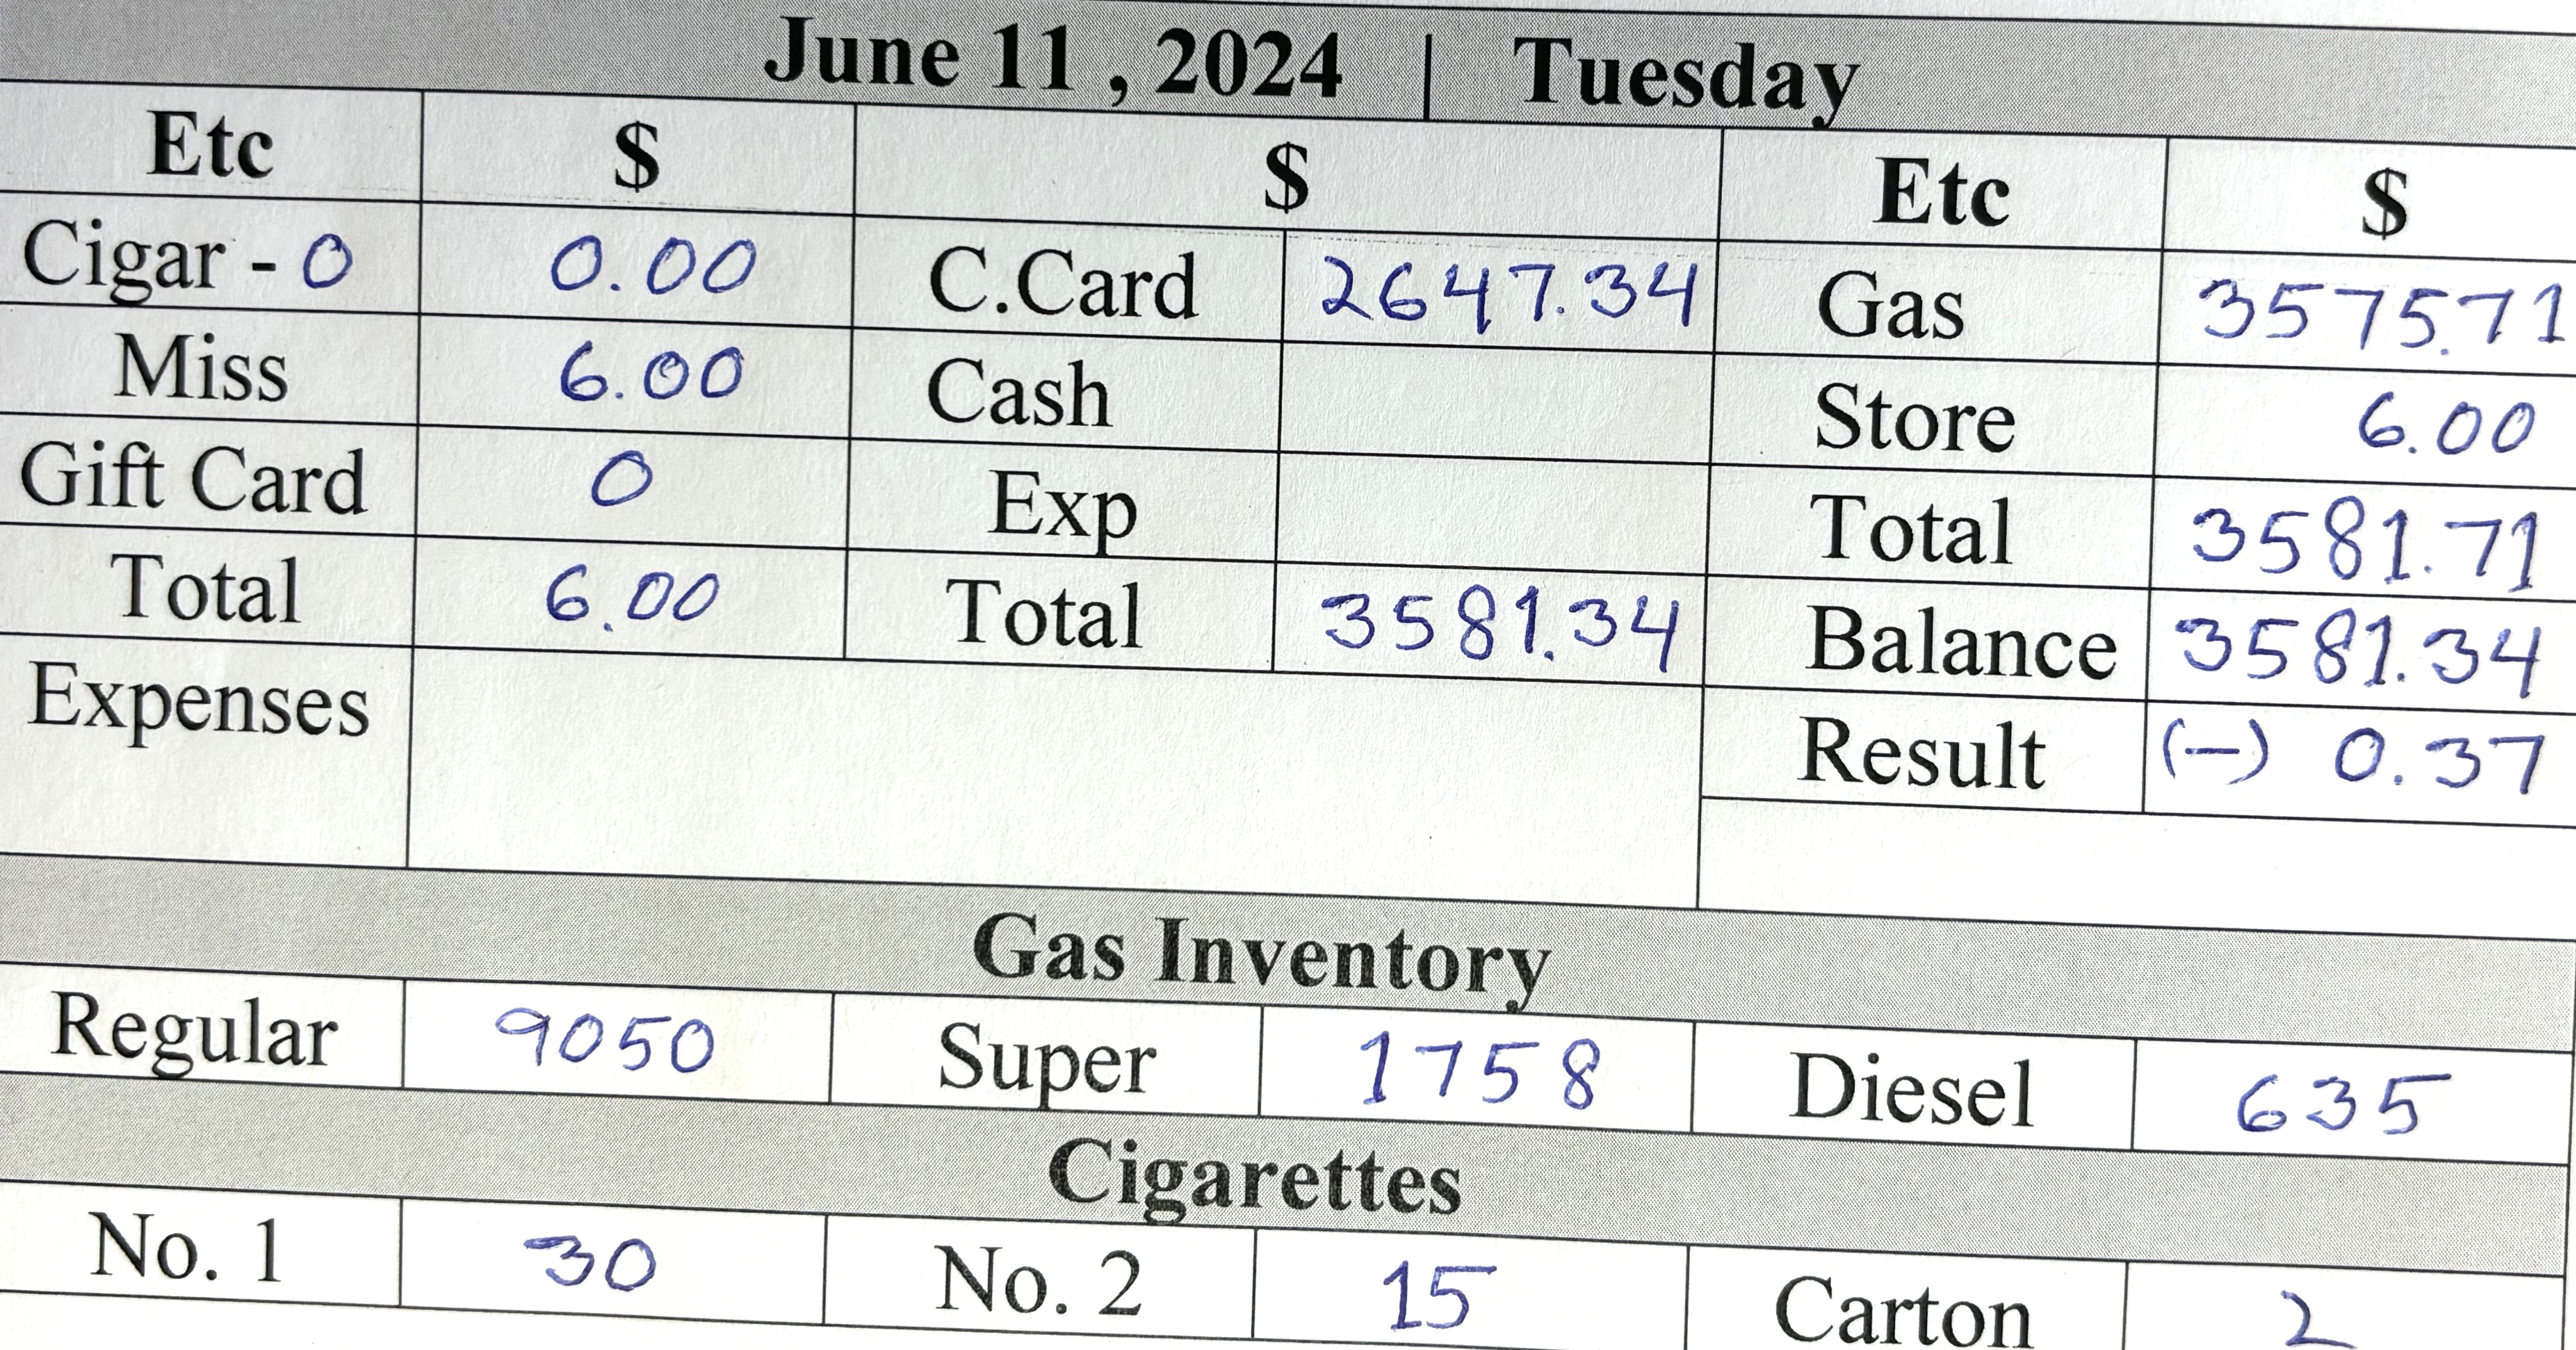 June 11 , 2024 | Tuesday
Etc $ $ Etc $
Cigar - 0 0.00 C.Card 2647.34 Gas 3575.71
Miss 6.00 Cash Store 6.00
Gift Card 0 Exp Total 3581.71
Total 6.00 Total 3581.34 Balance 3581.34
Expenses Result (-) 0.37
Gas Inventory
Regular 9050 Super 1758 Diesel 635
Cigarettes
No. 1 30 No. 2 15 Carton 2